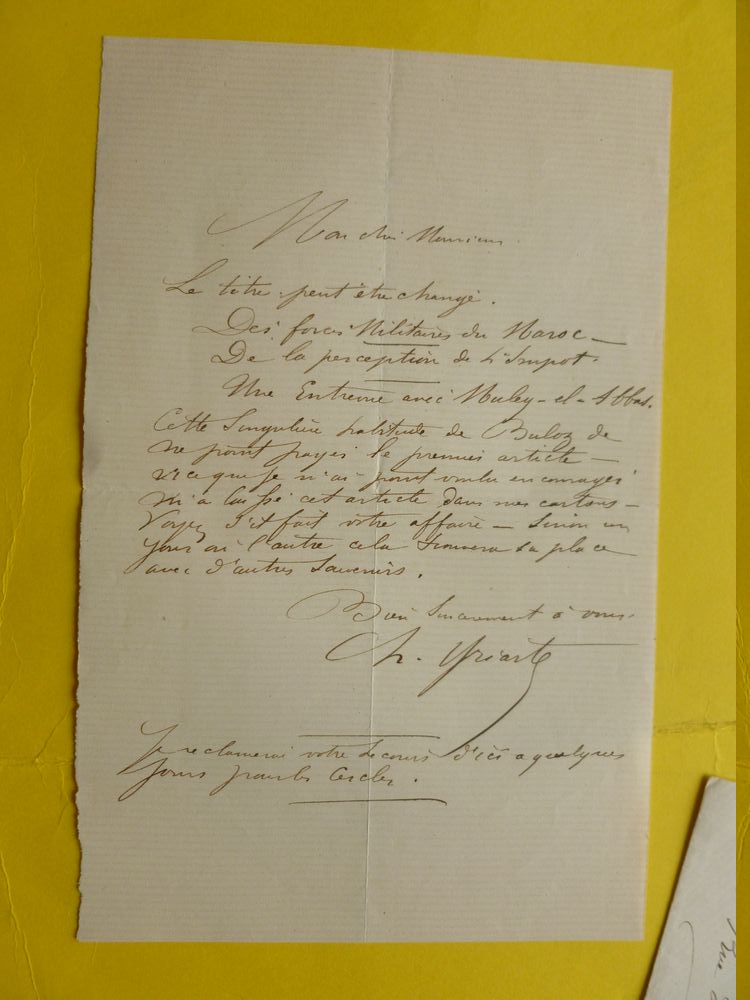 Mon cher Monsieur
Le titre peut être changé.
Des forces Militaires du Maroc —
De la perception de L'Impot.
Une Entrevue avec Muley-el-Abbas.
Cette Singulière habitude de Buloz de
ne point payer le premier article —
ce que je n'ai point voulu encourager
m'a laissé cet article dans mes cartons —
Voyez s'il fait votre affaire — Sinon un
jour ou l'autre cela trouvera sa place
avec d'autres Souvenirs.
Bien Sincèrement à vous
Ch. Yriarte
Je réclamerai votre Secours d'ici a quelques
jours pour les Cercles.
Rue